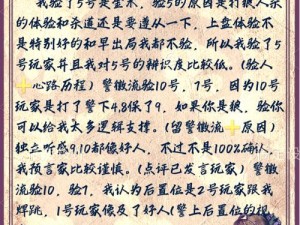 我验了5号是金水，验5的原因是打狼人杀
的体验和杀道还是要遵从一下，上盘体验不
是特别好的和早出局我都不验，所以我验了5
号玩家并且我对5号的辩识度比较低。（验人
心路历程）警徽流验10号，7号，因为10号
玩家是打了警下4,8保了9。如果你是狼，验你
可以给我太多逻辑支撑。（留警徽流➕原因）
独立听感9,10都像好人，不过不是100%确认，
我预言家比较谨慎。（点评已发言玩家）警徽
流验10，验7，我认为后置位是2号玩家跟我
焊跳，1号玩家像及了好人（警上后置位的视